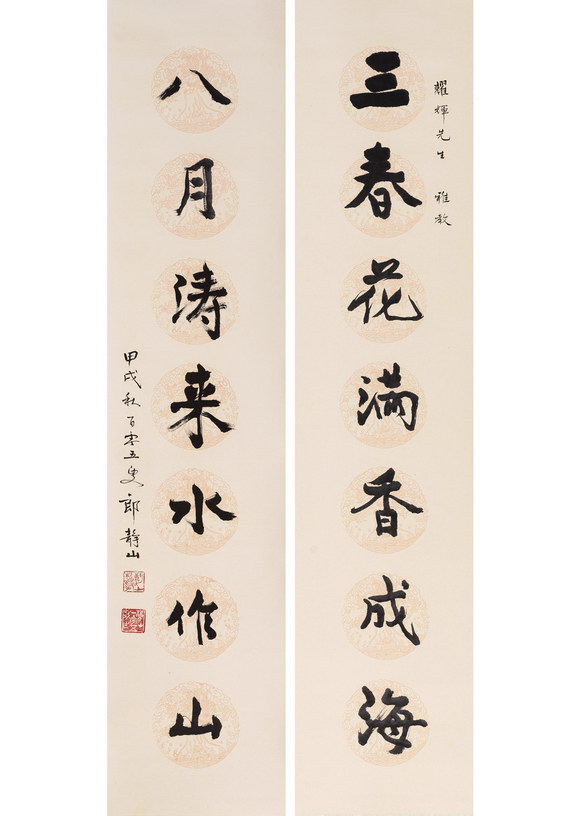 耀輝先生 雅教
三春花满香成海
八月涛来水作山
甲戌秋百零五叟郎静山